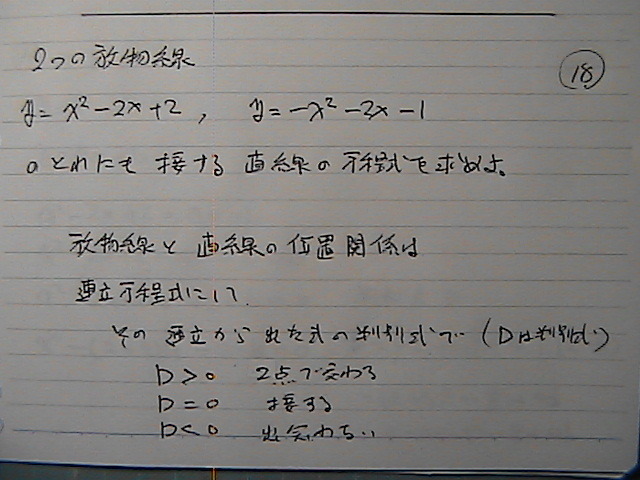 2つの放物線
⑱
y=x²-2x+2, y=-x²-2x-1
のどれにも 接する 直線の方程式を求めよ。
放物線と直線の位置関係は
連立方程式にして
その連立から出た式の判別式で (Dは判別式)
D>0 2点で交わる
D=0 接する
D<0 出会わない